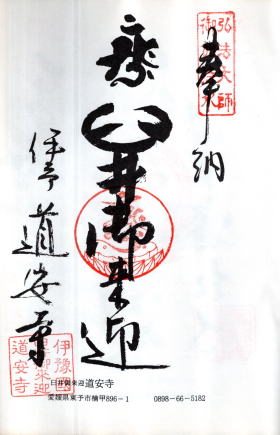 弘法大師
奉納
臼井御来迎
伊予 道安寺
伊豫國
臼井御來迎
道安寺
臼井御来迎 道安寺
愛媛県東予市楠甲896－1 0898－66－5182